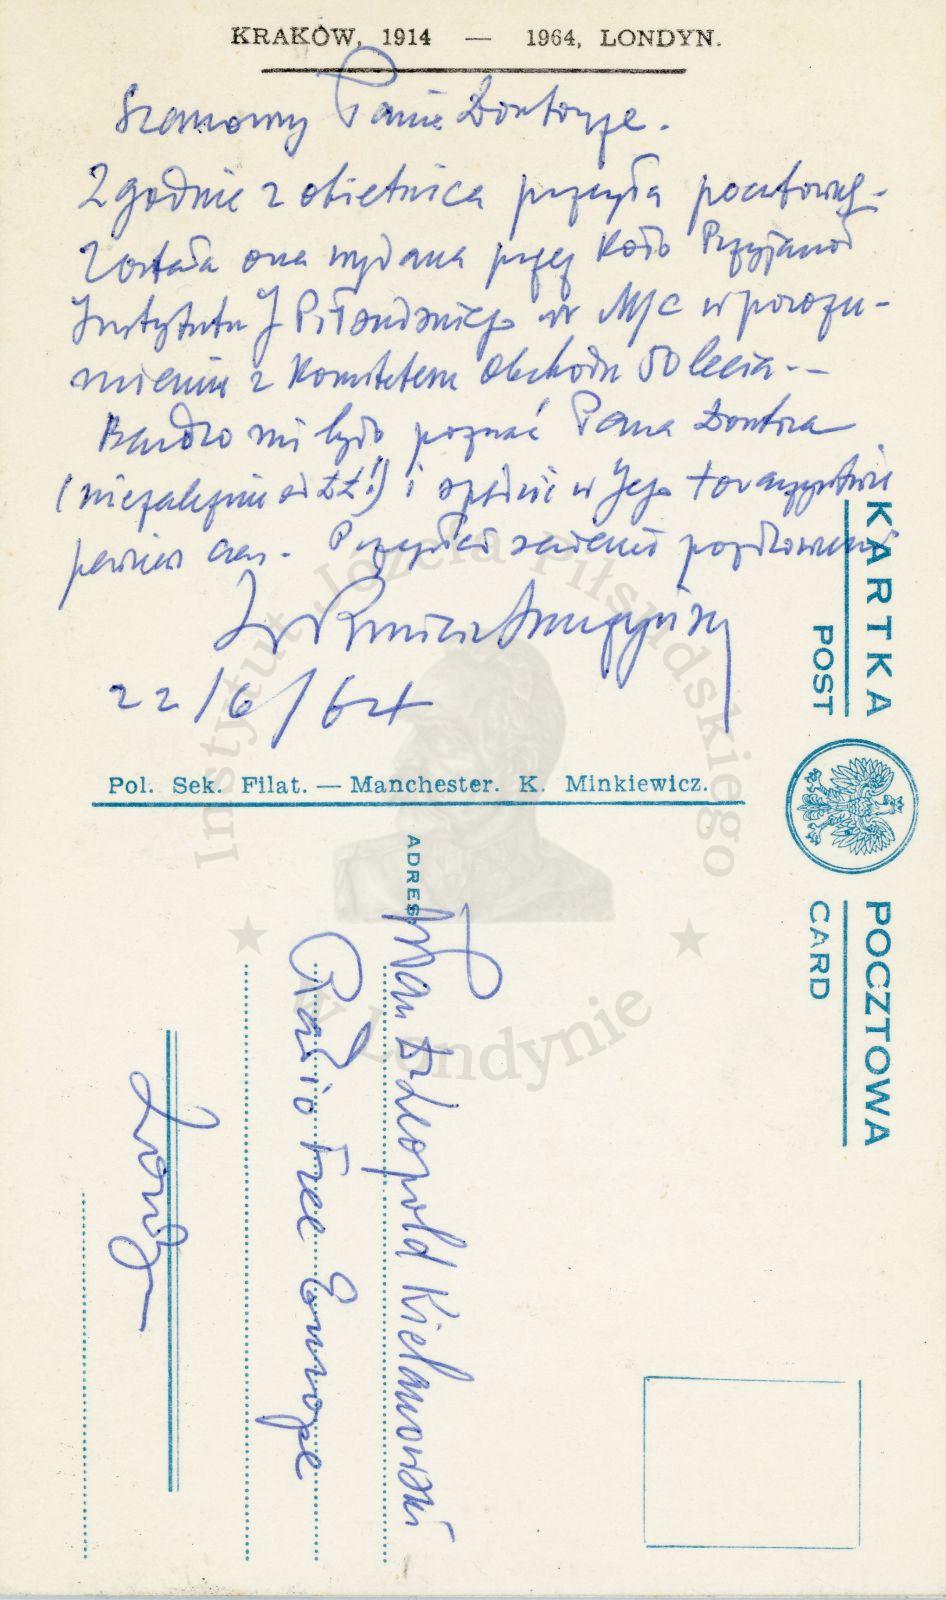 KRAKÓW, 1914 — 1964, LONDYN.
Szanowny Panie Doktorze.
Zgodnie z obietnicą przesyła pocztową.
Została ona wydana przez Koło Przyjaciół
Instytutu J Piłsudskiego w M/C w porozu-
mieniu z Komitetem Obchodu 50 lecia --
Bardzo mi było poznać Pana Doktora
(niezależnie od ) i spędzić w Jego towarzystwie
pewien czas. Przesyłam pozdrowienia
22/6/64
Pol. Sek. Filat. — Manchester. K. Minkiewicz.
KARTKA POCZTOWA
POST CARD
ADRES
Pan Dr Leopold Kielanowski
Radio Free Europe
Londyn
Instytut Józefa Piłsudskiego
w Londynie